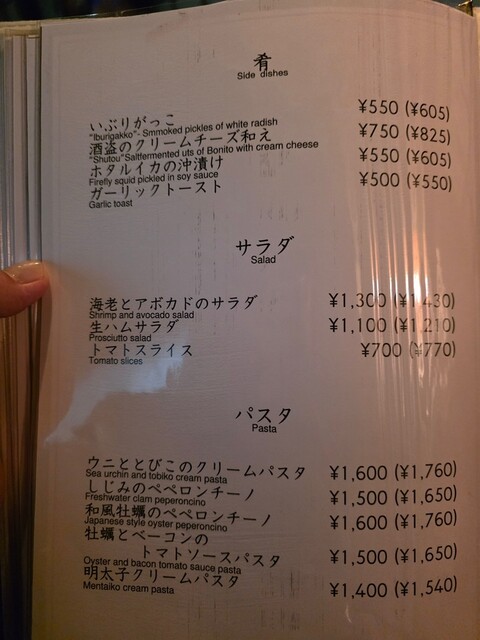 肴
Side dishes
いぶりがっこ ¥550 (¥605)
"Iburigakko"- Smmoked pickles of white radish
酒盗のクリームチーズ和え ¥750 (¥825)
"Shutou"Saltfermented uts of Bonito with cream cheese
ホタルイカの沖漬け ¥550 (¥605)
Firefly squid pickled in soy sauce
ガーリックトースト ¥500 (¥550)
Garlic toast
サラダ
Salad
海老とアボカドのサラダ ¥1,300 (¥1,430)
Shrimp and avocado salad
生ハムサラダ ¥1,100 (¥1,210)
Prosciutto salad
トマトスライス ¥700 (¥770)
Tomato slices
パスタ
Pasta
ウニととびこのクリームパスタ ¥1,600 (¥1,760)
Sea urchin and tobiko cream pasta
しじみのペペロンチーノ ¥1,500 (¥1,650)
Freshwater clam peperoncino
和風牡蠣のペペロンチーノ ¥1,600 (¥1,760)
Japanese style oyster peperoncino
牡蠣とベーコンの
トマトソースパスタ ¥1,500 (¥1,650)
Oyster and bacon tomato sauce pasta
明太子クリームパスタ ¥1,400 (¥1,540)
Mentaiko cream pasta